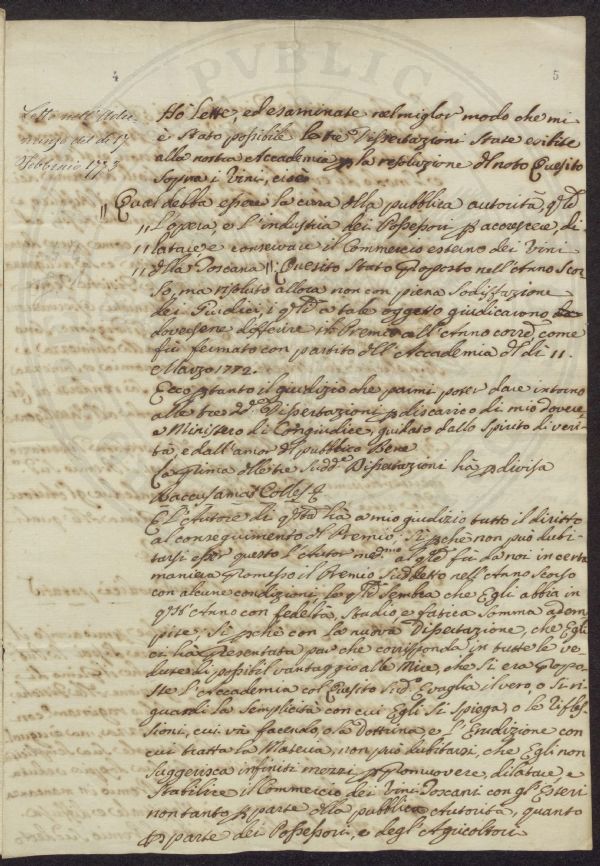 4
5
Letto nell'Adu
nanza del dì 17
Febbraio 1773
Hò lette, ed esaminate nel miglior modo che mi
è stato possibile le tre Dissertazioni state esibite
alla nostra Accademia p la resoluzione dl noto Quesito
sopra i Vini, cioè
" Qual debba essere la cura dlla pubblica autorità, q.le
" L'opera, e l'industria dei Possessori p accrescere, di
" latare e conservare il Commercio esterno dei Vini
" dlla Toscana ": Quesito stato proposto nell'Anno scor
so, ma risoluto allora non con piena sodisfazione
dei Giudici, i q.li a tale oggetto giudicarono
doversene differire il Premio all'Anno corr.e come
fù fermato con partito dll'Accademia dl dì 11.
Marzo 1772.
Ecco ptanto il giudizio che parmi poter dare intorno
alle tre d.e Dissertazioni p discarico di mio dovere,
e Ministero di Congiudice, guidato dallo spirito di veri
tà, e dall'amor dl pubblico Bene
La prima dlle tre sudd.e Dissertazioni hà p divisa
Baccus amat Colles
E l'Autore di q.sta hà a mio giudizio tutto il diritto
al conseguimento dl Premio; sì pchè non può dubi
tarsi esser questo l'Autor med.mo a q.le fù da noi in certa
maniera promesso il Premio sud.etto nell'Anno scorso
con alcune condizioni, le q.li sembra che Egli abbia in
q.st'Anno con fedeltà, studio e fatica somma adem
pite, sì pchè con la nuova Dissertazione, che Egli
ci hà presentata par che corrisponda in tutte le ve
dute di possibil vantaggio alle Mire, che si era propo
ste l'Accademia col Quesito sud.o E vaglia il vero, o si ri
guardi la semplicità con cui Egli si spiega, o le rifles
sioni, cui và facendo, o la dottrina, e l'Erudizione con
cui tratta la Materia, non può dubitarsi, che Egli non
suggerisca infiniti mezzi p promuovere, dilatare, e
stabilire il Commercio dei Vini Toscani con gl'Esteri
non tanto p parte dlla pubblica Autorità, quanto
p parte dei Possessori, e degl'Agricoltori.